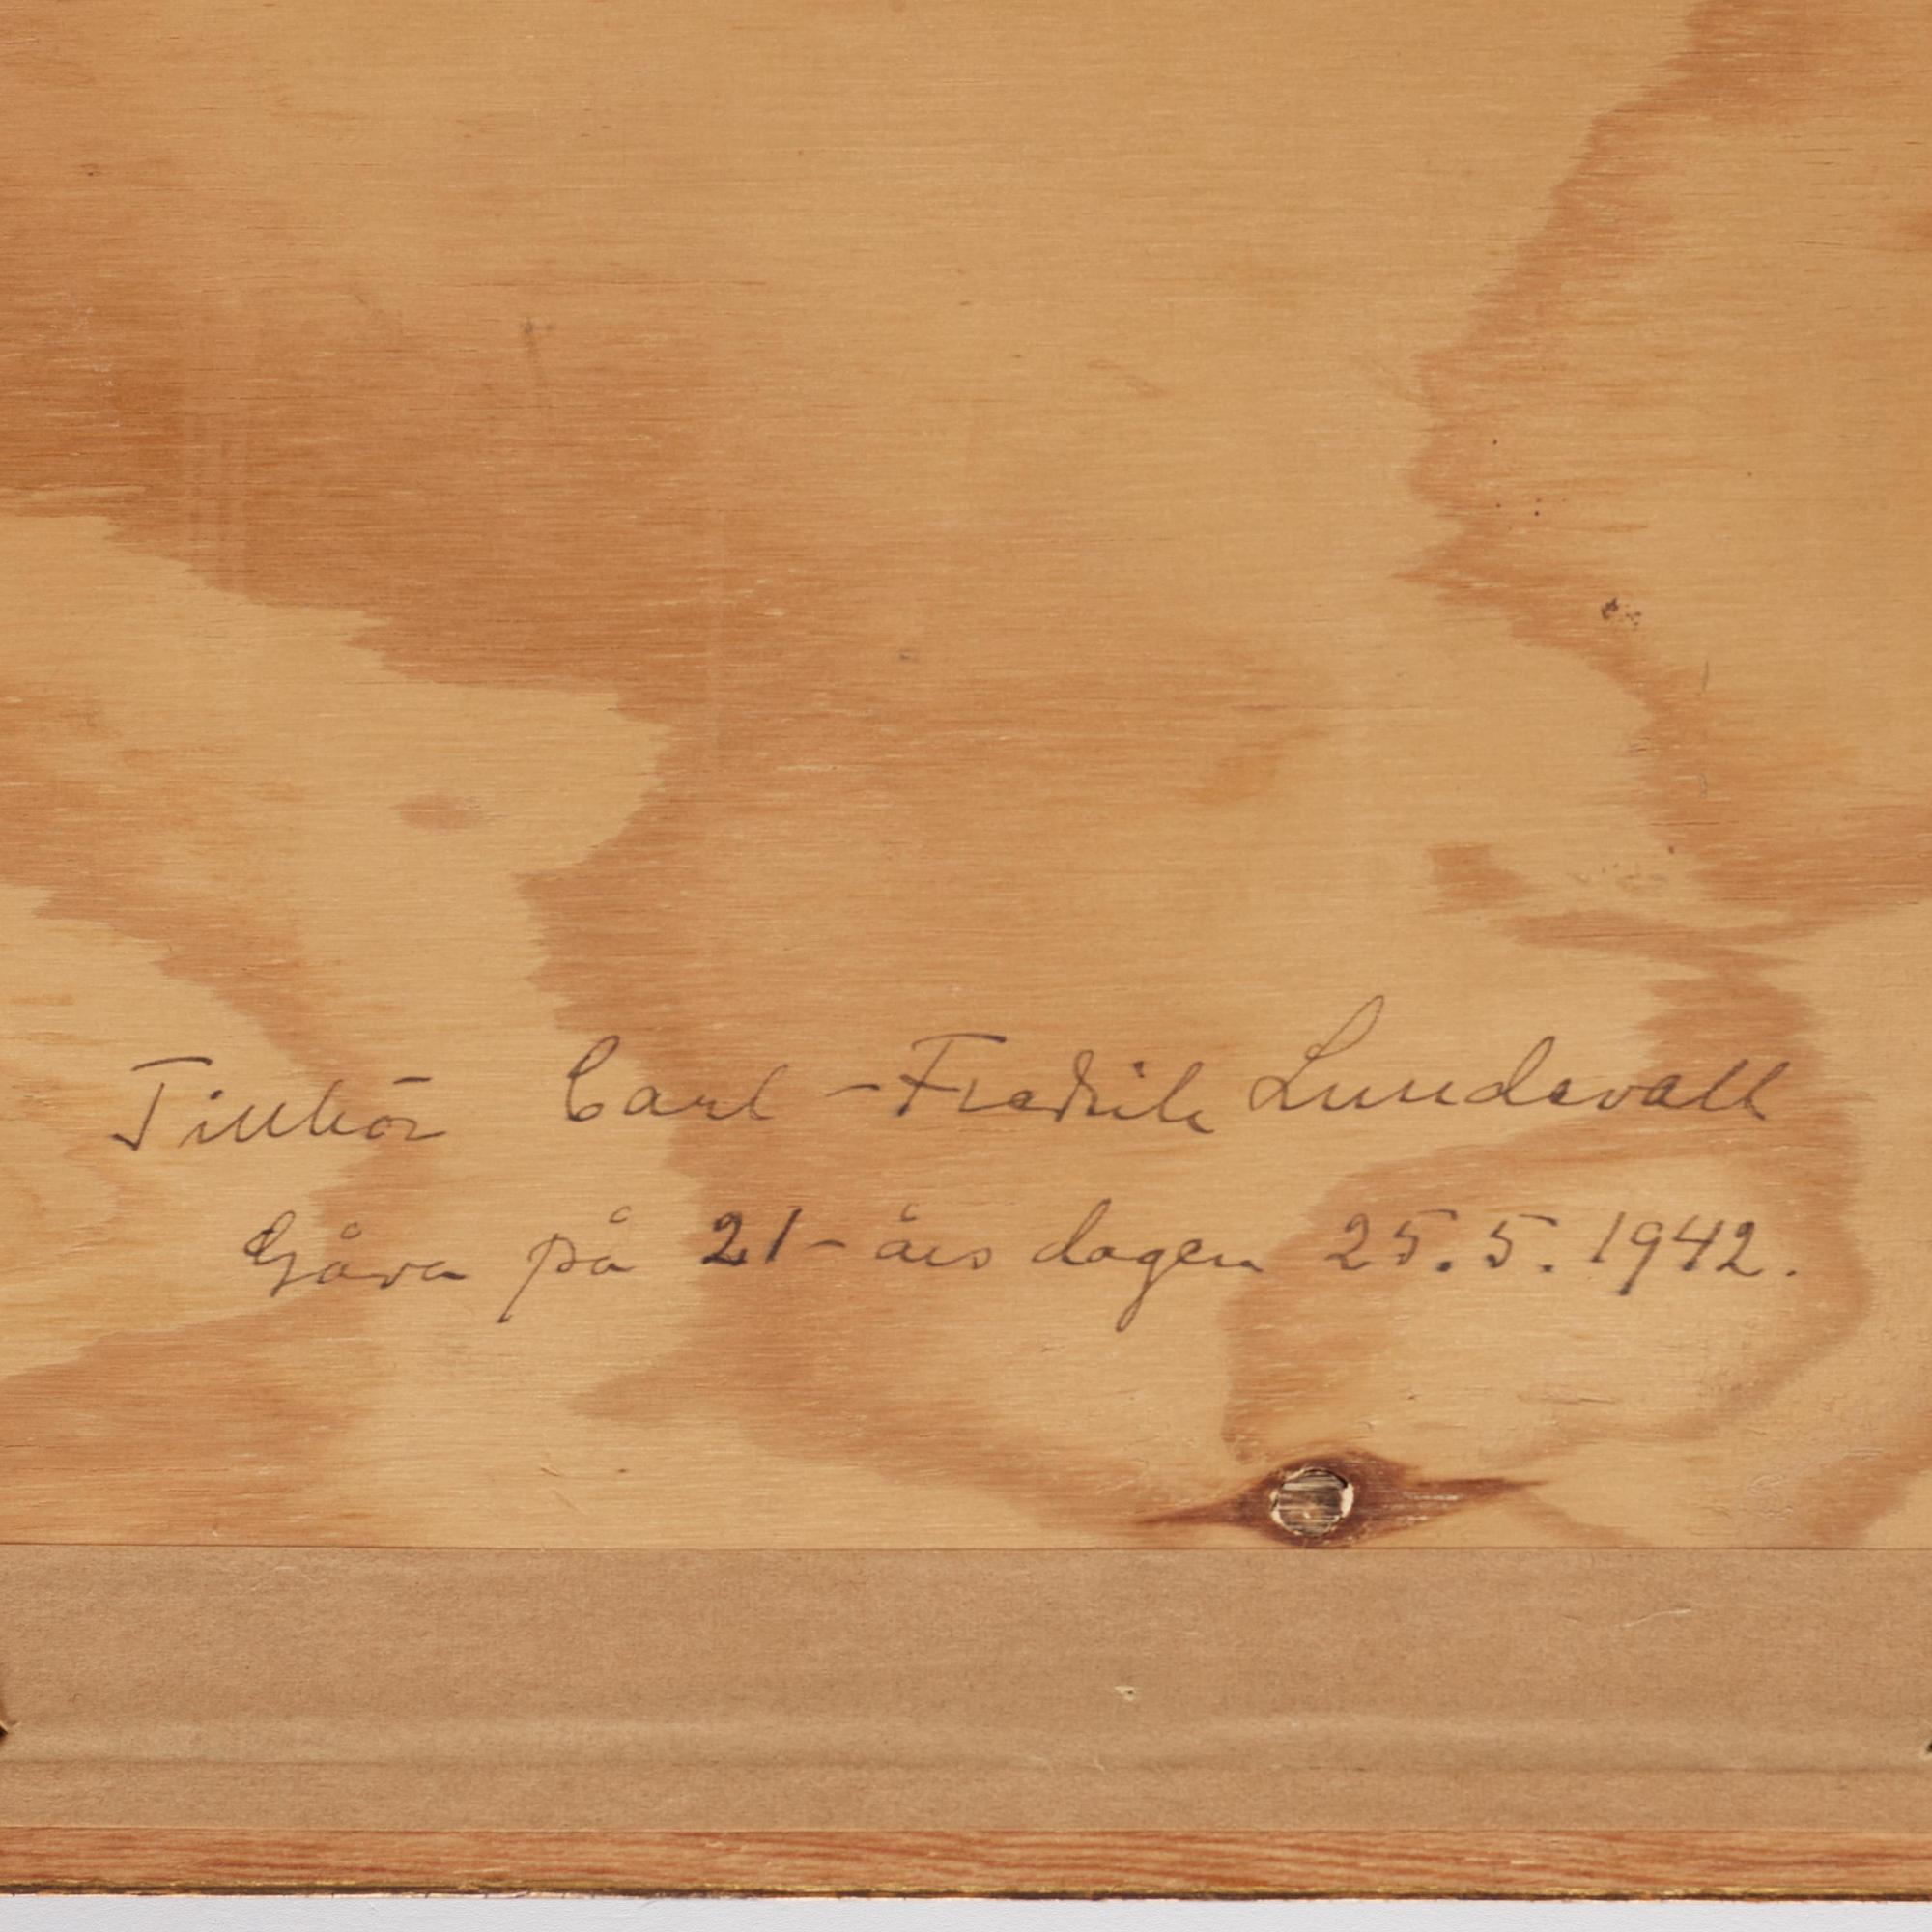 Tillhör Carl-Fredrik Lundevall
Gåva på 21-års dagen 25.5.1942.